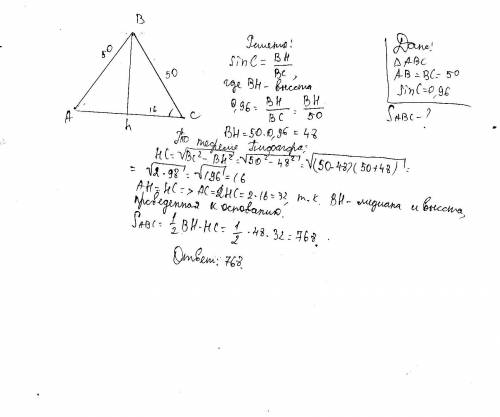 B
50
50
A
16
C
h
Решение:
sinC = BH/BC,
где BH - высота
0,96 = BH/BC = BH/50
BH = 50·0,96 = 48
По теореме Пифагора:
HC = √BC² - BH² = √50² - 48² = √(50-48)(50+48) =
= √2·98 = √196 = 16
AH = HC => AC = 2HC = 2·16 = 32, т.к. BH - медиана и высота,
проведенная к основанию.
SABC = 1/2 BH·HC = 1/2 · 48·32 = 768.
Ответ: 768.
Дано:
△ABC
AB = BC = 50
sinC = 0,96
SABC - ?